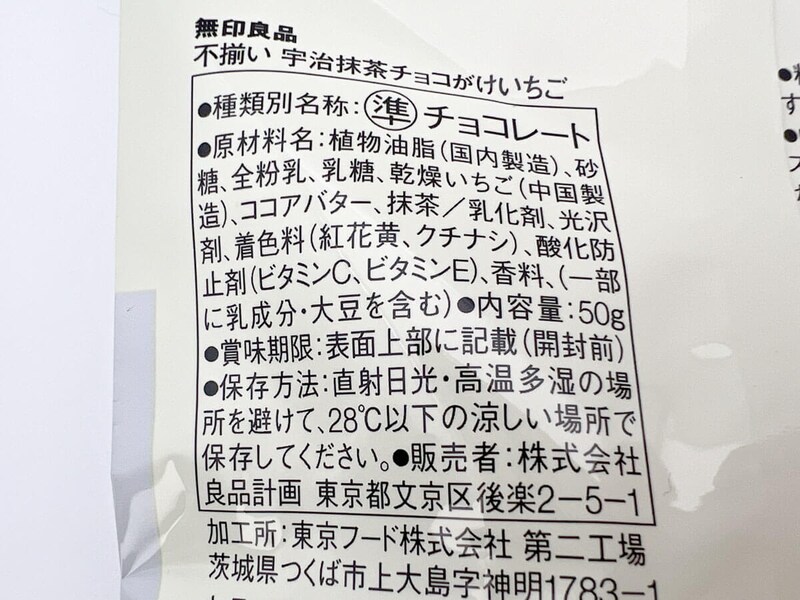 無印良品
不揃い 宇治抹茶チョコがけいちご
●種類別名称:㊜準 チョコレート
●原材料名:植物油脂(国内製造)、砂
糖、全粉乳、乳糖、乾燥いちご(中国製
造)、ココアバター、抹茶/乳化剤、光沢
剤、着色料(紅花黄、クチナシ)、酸化防
止剤(ビタミンC、ビタミンE)、香料、(一部
に乳成分・大豆を含む)●内容量:50g
●賞味期限:表面上部に記載(開封前)
●保存方法:直射日光・高温多湿の場
所を避けて、28℃以下の涼しい場所で
保存してください。●販売者:株式会社
良品計画 東京都文京区後楽2-5-1
加工所:東京フード株式会社 第二工場
茨城県つくば市上大島字神明1783-1